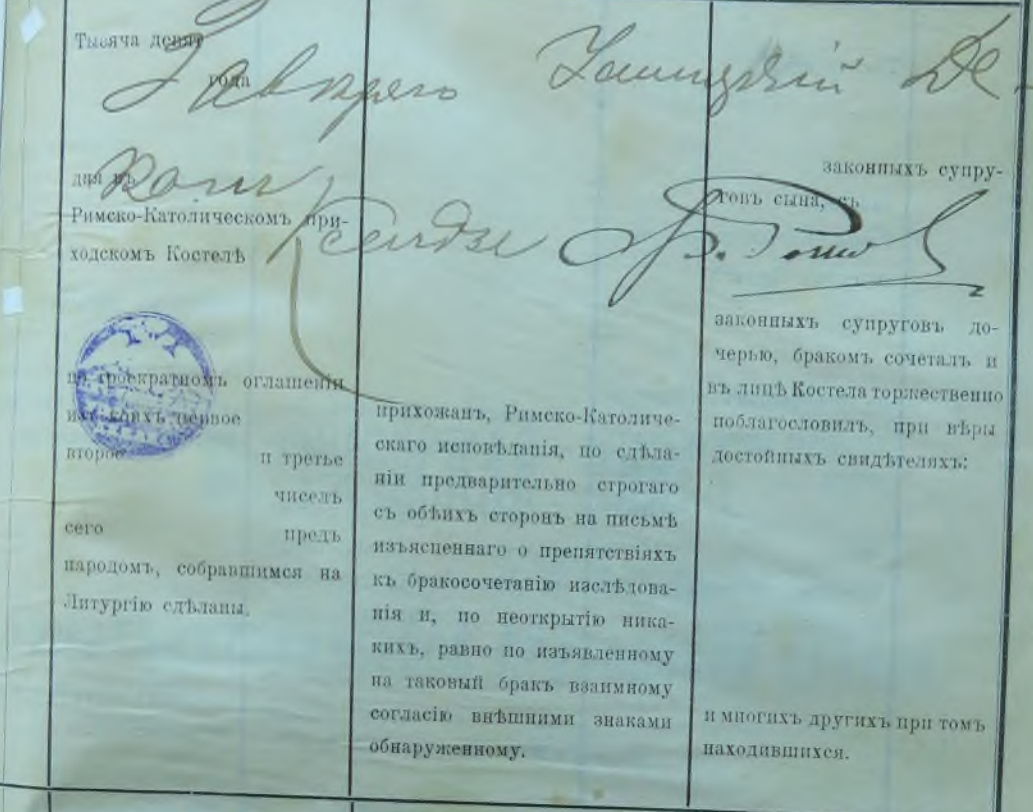 Тысяча девят
года
дня въ
Римско-Католическомъ при-
ходскомъ Костелѣ
по троекратномъ оглашеніи
изъ коихъ первое
второе и третье
чиселъ
сего предъ
народомъ, собравшимся на
Литургію сдѣланы.
Ксендзъ
прихожанъ, Римско-Католиче-
скаго исповѣданія, по сдѣла-
ніи предварительно строгаго
съ обѣихъ сторонъ на письмѣ
изъясненнаго о препятствіяхъ
къ бракосочетанію изслѣдова-
нія и, по неоткрытію ника-
кихъ, равно по изъявленному
на таковый бракъ взаимному
согласію внѣшними знаками
обнаруженному.
законныхъ супру-
говъ сына, съ
законныхъ супруговъ до-
черью, бракомъ сочеталъ и
въ лицѣ Костела торжественно
поблагословилъ, при вѣры
достойныхъ свидѣтеляхъ:
и многихъ другихъ при томъ
находившихся.